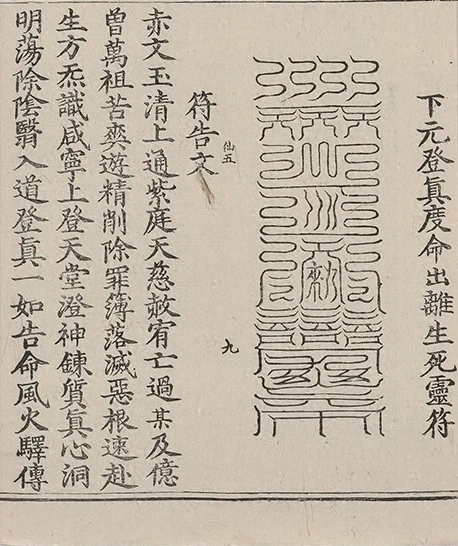 下元登真度命出離生死靈符
九
符告文
仙五
赤文玉清上通紫庭天慈赦宥亡過某及億
曾萬祖苦爽遊精削除罪簿落滅惡根速赴
生方炁識咸寧上登天堂澄神鍊質真心洞
明蕩除陰翳入道登真一如告命風火驛傳